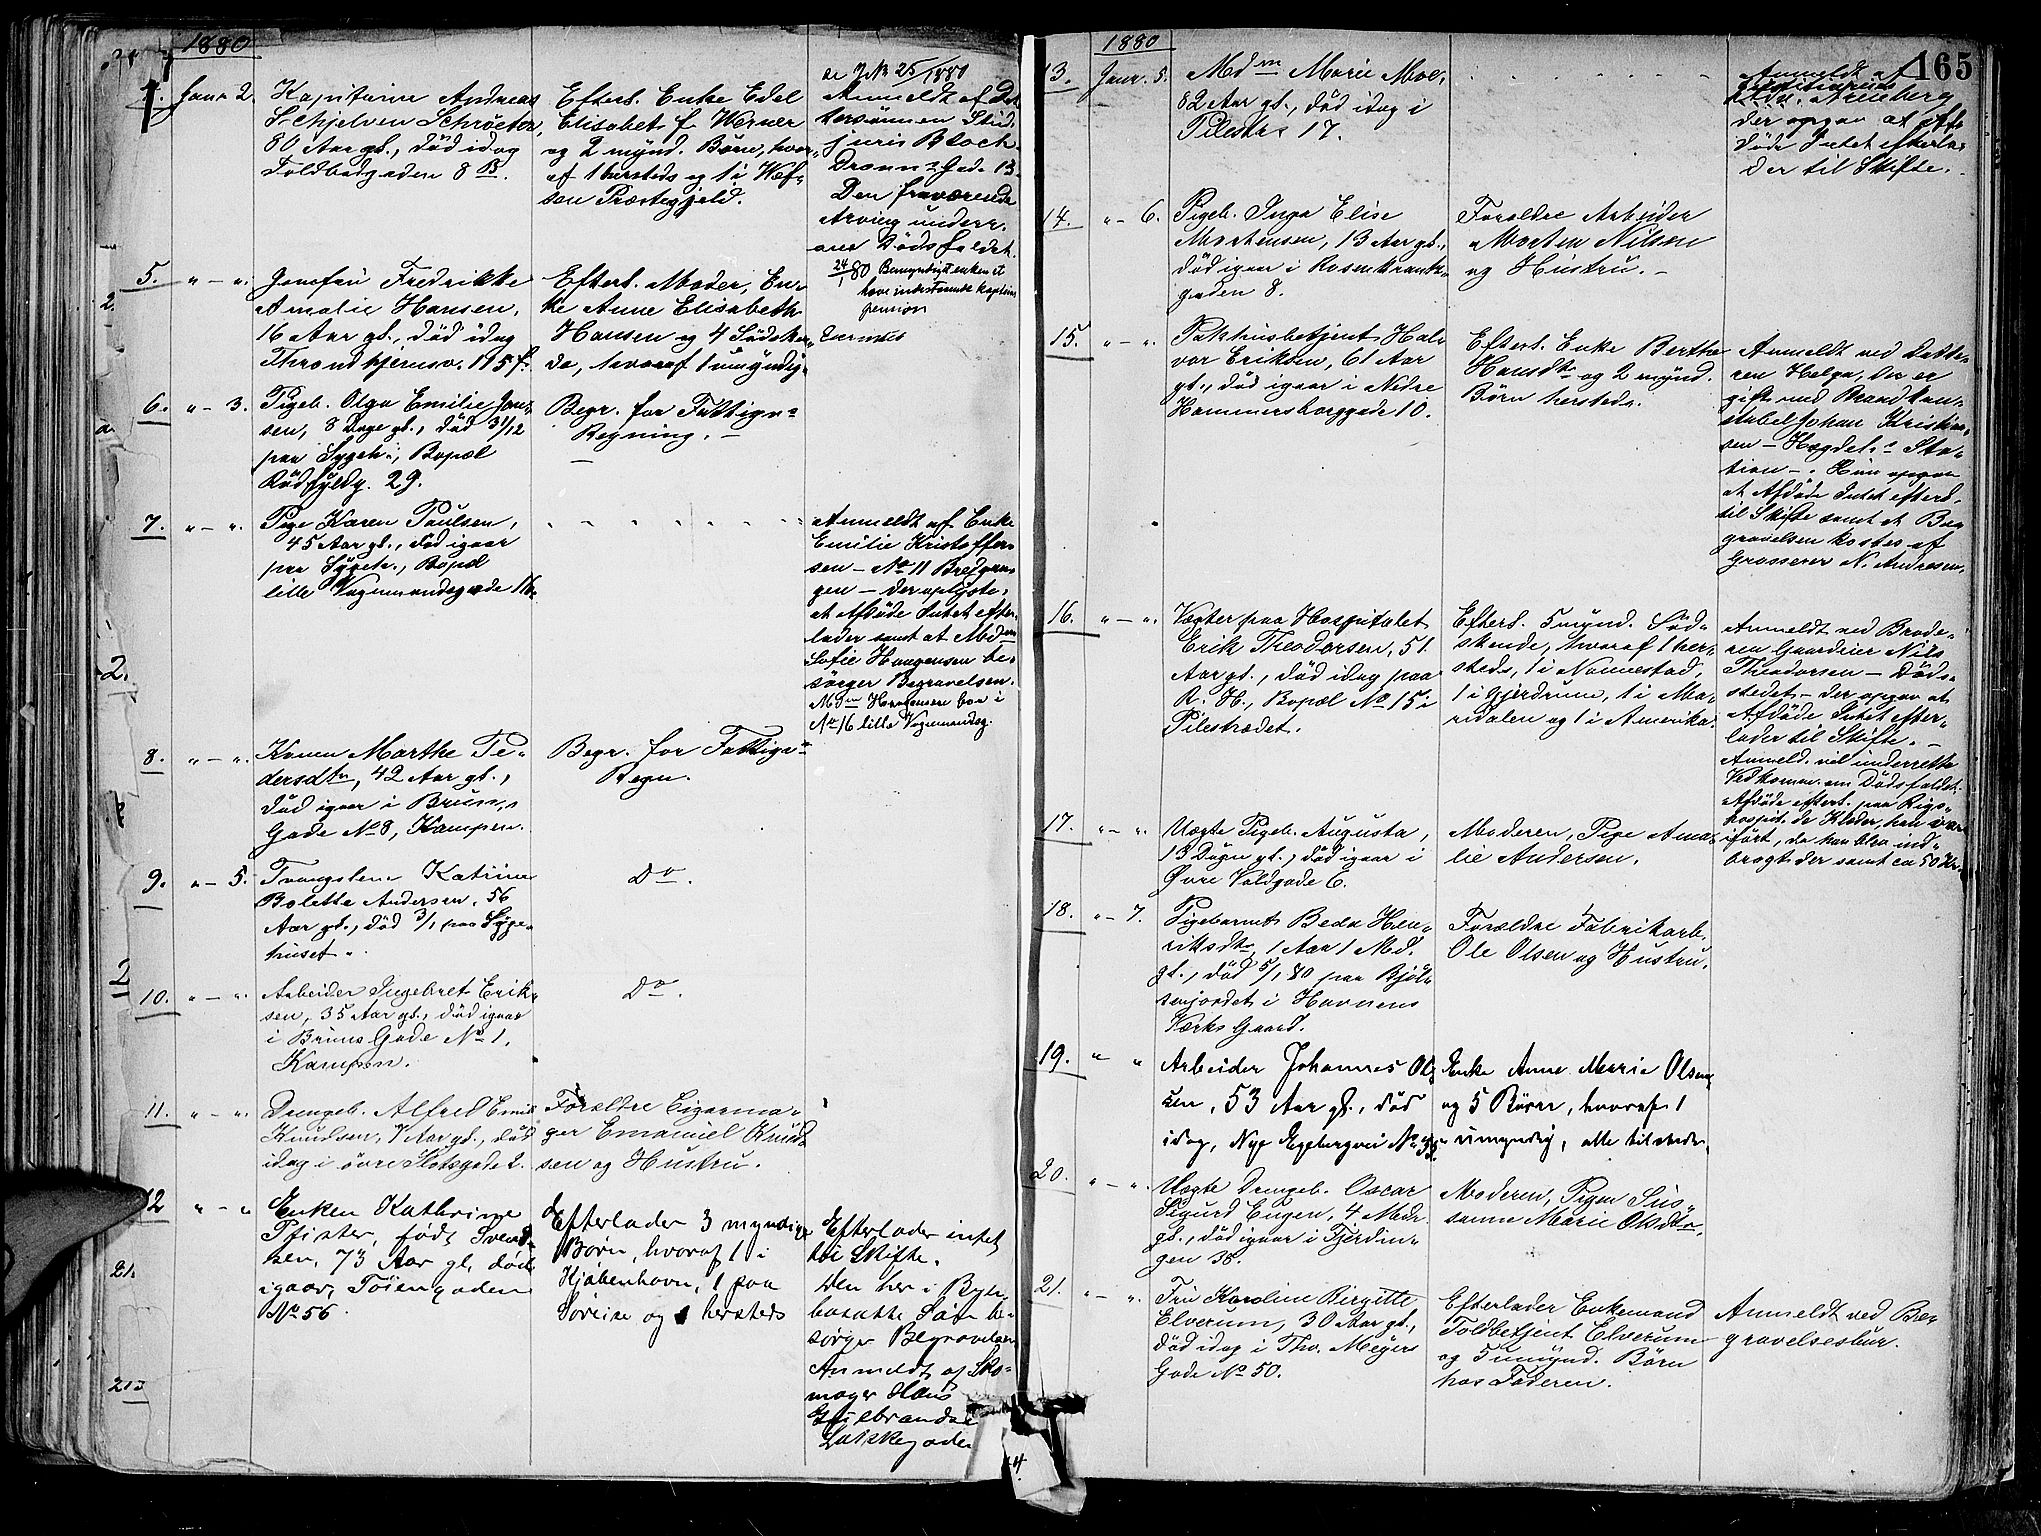 1880
Janr 2.
Kapitaine Andreas
Schjelven Schröeter,
80 Aar gl., död idag
Toldbodgaden 8 B.
Efterl. Enke Edel
Elisabet f. Werner
og 2 mynd. Børn, hvor-
af 1 hersteds og 1 i Vef-
sen Præstegjeld.
25/1880
Anmeldt af Dat
tersönnen Stud.
juris Bloch
Dronn.s Gade 13.
Den fraværende
Arving underr.
om Dödsfaldet.
24/1 80 Bemyndiget enken at
hæve indestaaende kapteins
pension
5. " - ". Jomfru Fredrikke
Amalie Hansen,
16 Aar gl., död idag
Throndhjemsv. 115 f.
Efterl. Moder, En-
ke Anne Elisabeth
Hansen og 4 Södsken-
de, hvoraf 1 umyndig.
6. " - 3. Pigeb. Olga Emilie Jan-
sen, 8 Dage gl., död 31/12
paa Sygeh., Bopæl
Rödfyldg. 29.
Begr. for Fattigv.s
Regning. -
7. " - ". Pige Karen Paulsen,
45 Aar gl., död igaar
paa Sygeh., Bopæl
lille Vognmandsgade 16.
Anmeldt af Enke
Emilie Kristoffer-
sen - No 11 Bredgan-
gen - der oplyste,
at Afdöde Intet efter-
lader samt at Mdm
Sofie Haagensen be-
sörger Begravelsen.
Mdm Haagensen bor i
No 16 lille Vognmandsg.
8. " - ". Konen Marthe Pe-
dersdtr, 42 Aar gl.,
död igaar i Bruuns
Gade No 8, Kampen.
Begr. for Fattigv.s
Regn.
9. " - 5. Tvangslem Katrine
Bolette Andersen, 56
Aar gl., död 3/1 paa Syge-
huset.
Do.
10. " - ". Arbeider Ingebret Erik-
sen, 35 Aar gl., död igaar
i Bruuns Gade No 1,
Kampen.
Do.
11. " - ". Drengeb. Alfred Emil
Knudsen, 7 Aar gl., död
idag i övre Slotsgade 2.
Forældre Cigarma-
ger Emanuel Knud-
sen og Hustru.
12 " - " Enken Kathrine
Pfister, født Svend-
sen, 73 Aar gl, død
igaar, Töiengaden
No 56.
Efterlader 3 myndige
Børn, hvoraf 1 i
Kjøbenhavn, 1 paa
Søreise og 1 hersteds
Efterlader intet
til Skifte.
Den her i Byen
bosatte Søn be-
sørger Begravelsen
Anmeldt af Sko-
mager Hans
Gulbrandsen
Lakkegaden
21.
213
165
1880
13. Janr. 5. Mdm Marie Moe,
82 Aar gl., död idag i
Pilestræ 17.
Anmeldt af
der opgav at Af-
döde Intet efterla-
der til Skifte.
14. " - 6. Pigeb. Inga Elise
Mortensen, 13 Aar gl.,
död igaar i Rosenkrantz-
gaden 8.
Forældre Arbeider
Morten Nilsen
og Hustru. -
15. " - ". Pakhusbetjent Hal-
vor Eriksen, 61 Aar
gl., död igaar i Nedre
Hammersborggade 10.
Efterl. Enke Berthe
Hansdtr og 2 mynd.
Börn hersteds.
Anmeldt ved Datte-
ren Helga, der er
gift med Brandkon-
stabel Johan Kristian-
sen - Hægdeh.s Sta-
tion -. Hun opgav
at Afdöde Intet efterl.
til Skifte samt at Be-
gravelsen kostes af
Grosserer N. Andresen.
16. " - ". Vægter paa Hospitalet
Erik Theodorsen, 51
Aar gl., död idag paa
R. H., Bopæl No 15 i
Pilestrædet.
Efterl. 5 mynd. Söd-
skende, hvoraf 1 her-
steds, 1 i Nannestad,
1 i Gjerdrum, 1 i Ma-
ridalen og 1 i Amerika.
Anmeldt ved Brode-
ren Gaardeier Nils
Theodorsen - Döds-
stedet - der opgav at
Afdöde Intet efter-
lader til Skifte. -
Anmeld. vil underrette
Vedkomm. om Dödsfaldet.
Afdöde efterl. paa Rigs-
hospit. de Klæder, han var
iført, da han blev ind-
bragt der samt ca 50 Kr.
17. " - ". Uægte Pigeb. Augusta,
13 Dage gl., död igaar i
Øvre Voldgade 6.
Moderen, Pige Ama-
lie Andersen.
18. " - 7. Pigebarnet Beda Hen-
riksdtr, 1 Aar 1 Md.
gl., död 5/1 80 paa Bjöl-
senjordet i Havnens
Værks Gaard.
Forældre Fabrikarb.
Ole Olsen og Hustru.
19. " " Arbeider Johannes Ol-
sen, 53 Aar gl., død
idag, Nye Egebergvei No 33.
Enke Anne Marie Olsen
og 5 Børn, hvoraf 1
umyndig, alle tilstede.
20. " - ". Uægte Drengeb. Oscar
Sigurd Eugen, 4 Mdr.
gl., död igaar i Fjerdin-
gen 38.
Moderen, Pigen Sus-
sanne Marie Olsdtr.
21. " - ". Fru Karoline Birgitte
Elverum, 30 Aar gl.,
död idag i Thv. Meyers
Gade No 50.
Efterlader Enkemand
Toldbetjent Elverum
og 5 umynd. Børn
hos Faderen.
Anmeldt ved Be-
gravelsesbur.